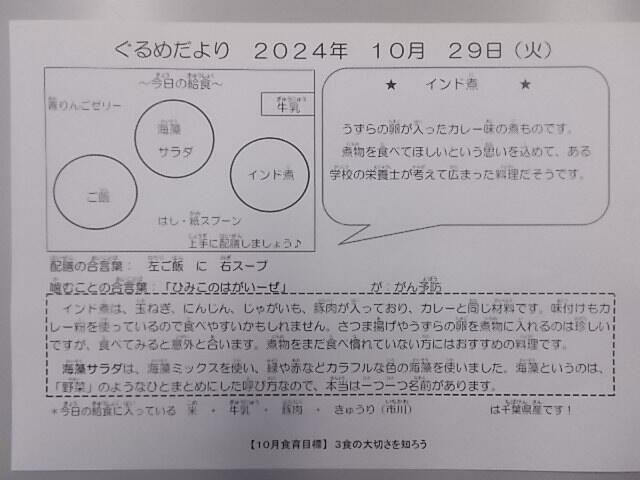 ぐるめだより 2024年 10月 29日(火)
~今日の給食~
青りんごゼリー
牛乳
海藻
サラダ
ご飯
インド煮
はし・紙スプーン
上手に配膳しましょう♪
★ インド煮 ★
うずらの卵が入ったカレー味の煮ものです。
煮物を食べてほしいという思いを込めて、ある
学校の栄養士が考えて広まった料理だそうです。
配膳の合言葉: 左ご飯 に 右スープ
噛むことの合言葉:「ひみこのはがいーぜ」 が:がん予防
インド煮は、玉ねぎ、にんじん、じゃがいも、豚肉が入っており、カレーと同じ材料です。味付けもカ
レー粉を使っているので食べやすいかもしれません。さつま揚げやうずらの卵を煮物に入れるのは珍しい
ですが、食べてみると意外と合います。煮物をまだ食べ慣れていない方にはおすすめの料理です。
海藻サラダは、海藻ミックスを使い、緑や赤などカラフルな色の海藻を使いました。海藻というのは、
「野菜」のようなひとまとめにした呼び方なので、本当は一つ一つ名前があります。
*今日の給食に入っている 米 ・ 牛乳 ・ 豚肉 ・ きゅうり(市川) は千葉県産です!
【10月食育目標】 3食の大切さを知ろう